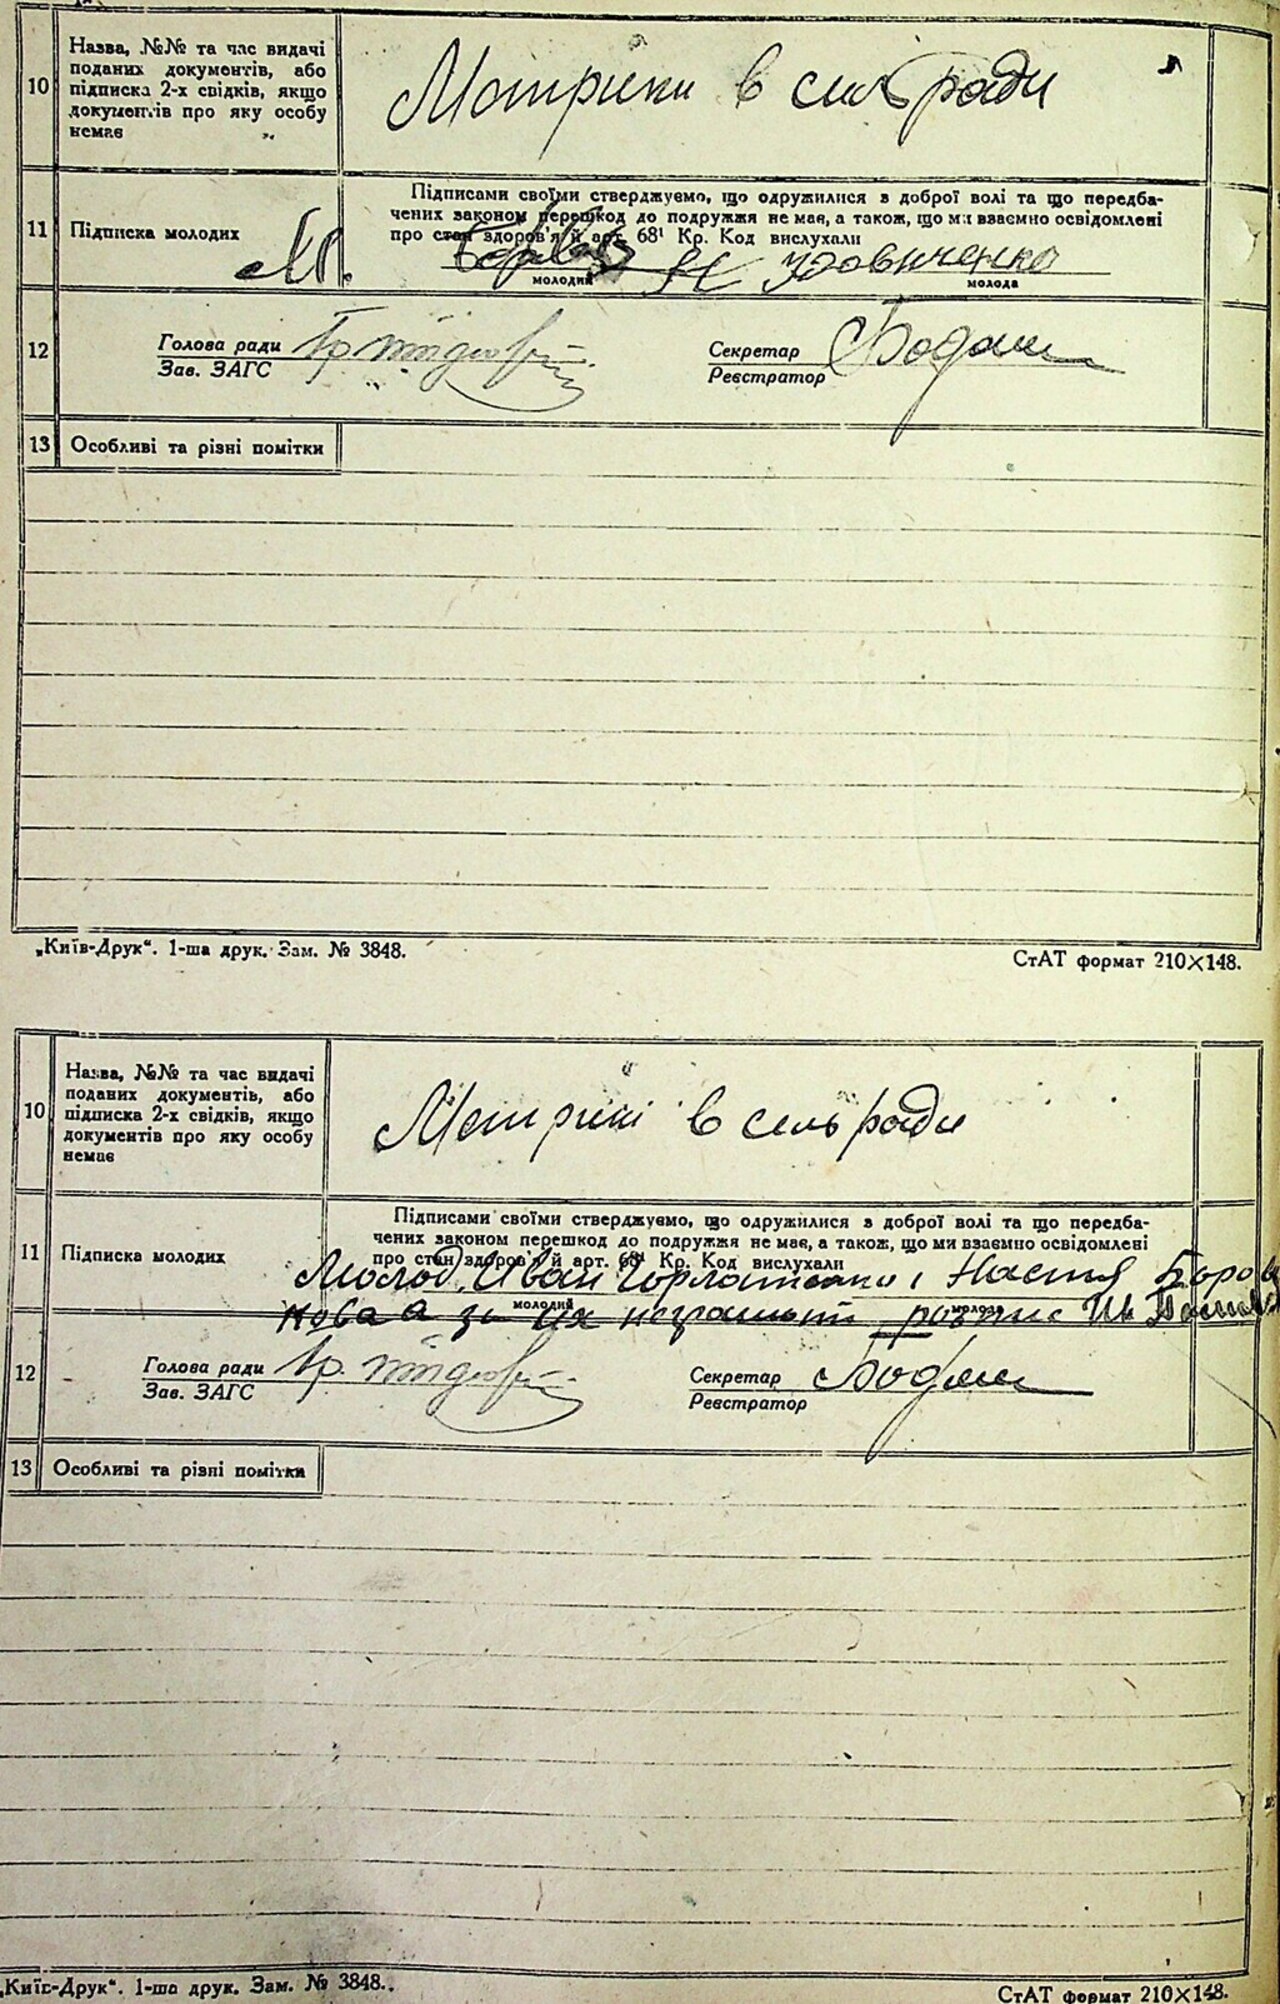 10
Назва, №№ та час видачі
поданих документів, або
підписка 2-х свідків, якщо
документів про яку особу
немає
Метрики в сельради
11
Підписка молодих
Підписами своїми стверджуємо, що одружилися з доброї волі та що передба-
чених законом перешкод до подружжя немає, а також, що ми взаємно освідомлені
про стан здоров'я й арт. 68¹ Кр. Код вислухали
Н Удовиченко
молодий молода
12
Голова ради
Зав. ЗАГС
Секретар
Реєстратор
13 Особливі та різні помітки
„Київ-Друк“. 1-ша друк. Зам. № 3848.
СтАТ формат 210×148.
10
Назва, №№ та час видачі
поданих документів, або
підписка 2-х свідків, якщо
документів про яку особу
немає
Метрикі в сельради
11
Підписка молодих
Підписами своїми стверджуємо, що одружилися з доброї волі та що передба-
чених законом перешкод до подружжя немає, а також, що ми взаємно освідомлені
про стан здоров'я й арт. 68¹ Кр. Код вислухали
Молод. Иван і Настя
а за их неграмотн
молодий молода
12
Голова ради
Зав. ЗАГС
Секретар
Реєстратор
13 Особливі та різні помітки
„Київ-Друк“. 1-ша друк. Зам. № 3848.
СтАТ формат 210×148.